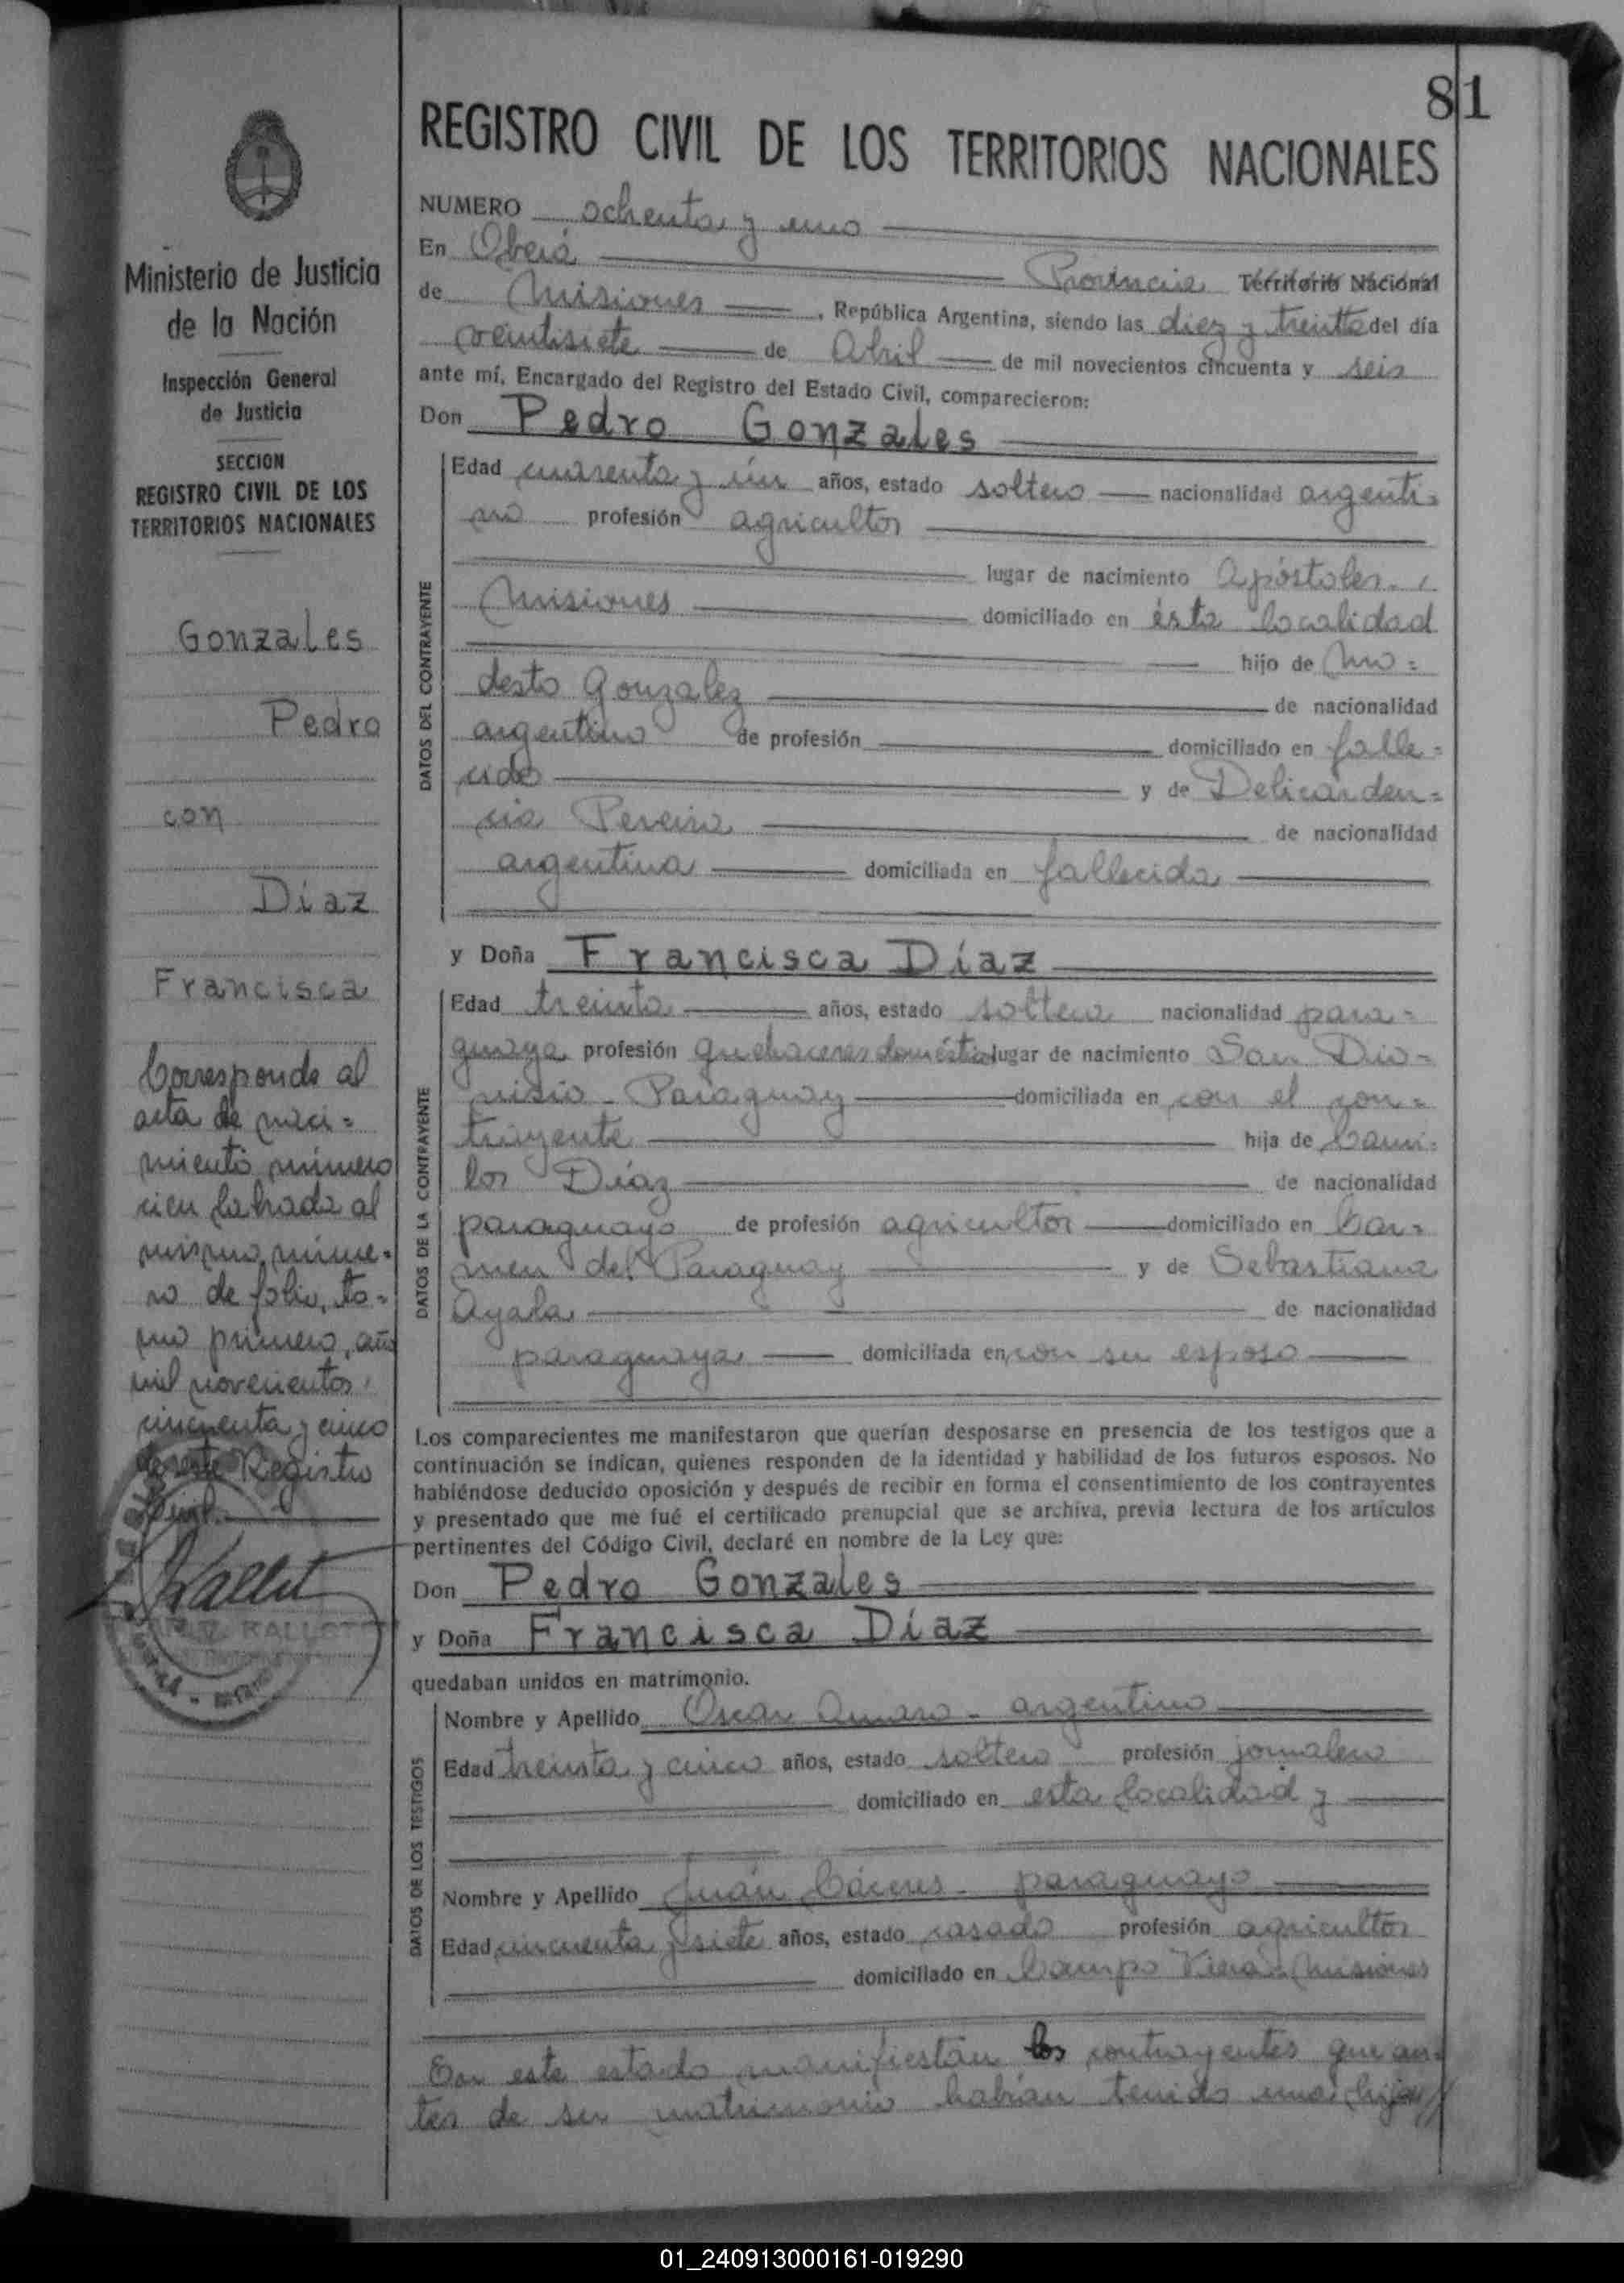 81
REGISTRO CIVIL DE LOS TERRITORIOS NACIONALES
NUMERO ochenta y uno
En Oberá Provincia Territorio Nacional
de Misiones, República Argentina, siendo las diez y treinta del día
veintisiete de Abril de mil novecientos cincuenta y seis
ante mí, Encargado del Registro del Estado Civil, comparecieron:
Don Pedro Gonzales
DATOS DEL CONTRAYENTE
Edad cuarenta y ún años, estado soltero nacionalidad argenti=
no profesión agricultor
lugar de nacimiento Apóstoles.,
Misiones domiciliado en ésta localidad
hijo de Mo=
desto Gonzalez de nacionalidad
argentino de profesión domiciliado en falle=
cido y de Delicarden=
cia Pereira de nacionalidad
argentina domiciliada en fallecida
y Doña Francisca Díaz
DATOS DE LA CONTRAYENTE
Edad treinta años, estado soltera nacionalidad para=
guaya profesión quehaceres domésticos lugar de nacimiento San Dio=
nisio - Paraguay domiciliada en con el con=
trayente hija de Cami=
los Díaz de nacionalidad
paraguayo de profesión agricultor domiciliado en Car=
men del Paraguay y de Sebastiana
Ayala de nacionalidad
paraguaya domiciliada en con su esposo
Los comparecientes me manifestaron que querían desposarse en presencia de los testigos que a
continuación se indican, quienes responden de la identidad y habilidad de los futuros esposos. No
habiéndose deducido oposición y después de recibir en forma el consentimiento de los contrayentes
y presentado que me fué el certificado prenupcial que se archiva, previa lectura de los artículos
pertinentes del Código Civil, declaré en nombre de la Ley que:
Don Pedro Gonzales
y Doña Francisca Díaz
quedaban unidos en matrimonio.
DATOS DE LOS TESTIGOS
Nombre y Apellido Oscar Amaro - argentino
Edad treinta y cinco años, estado soltero profesión jornalero
domiciliado en esta localidad y
Nombre y Apellido Juán Cáceres - paraguayo
Edad cincuenta y siete años, estado casado profesión agricultor
domiciliado en Campo Viera - Misiones
En este estado manifiestan los contrayentes que an=
tes de su matrimonio habían tenido una hija//
Ministerio de Justicia
de la Nación
Inspección General
de Justicia
SECCION
REGISTRO CIVIL DE LOS
TERRITORIOS NACIONALES
Gonzales
Pedro
con
Díaz
Francisca
Corresponde al
acta de naci=
miento número
cien labrada al
mismo núme=
ro de folio, to=
mo primero, año
mil novecientos
cincuenta y cinco
de este Registro
Civil.
RALLET
01_240913000161-019290